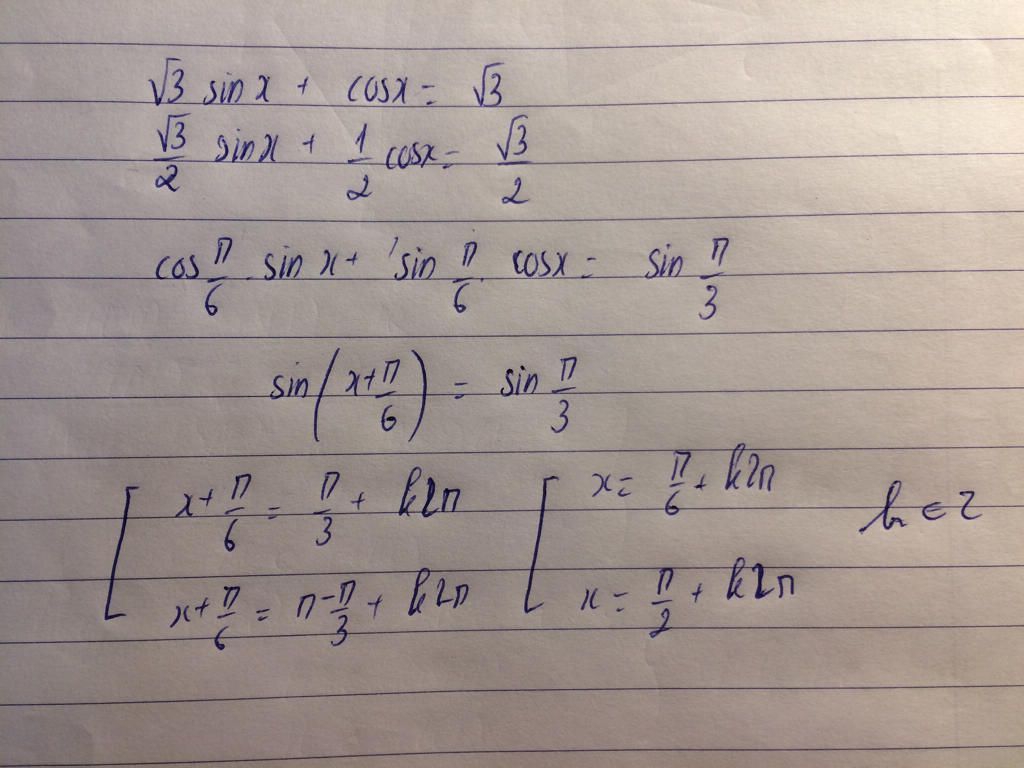 √3 sin x + cosx = √3
√3/2 sinx + 1/2 cosx = √3/2
cos π/6 . sin x + sin π/6 . cosx = sin π/3
sin(x + π/6) = sin π/3
[ x + π/6 = π/3 + k2π [ x = π/6 + k2π k ∈ Z
x + π/6 = π - π/3 + k2π x = π/2 + k2π